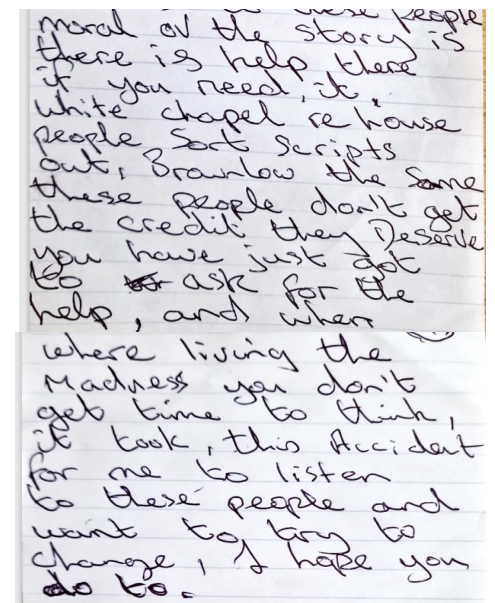 to these people
moral ov the story is
there is help there
if you need it.
white chapel re house
people Sort Scripts
out, Brownlow the Same
these people don't get
the credit they Deserve
you have just got
to ask for the
help, and when
where living the
Madness you don't
get time to think,
it took, this Accident
for me to listen
to these people and
want to try to
change, I hope you
do to.